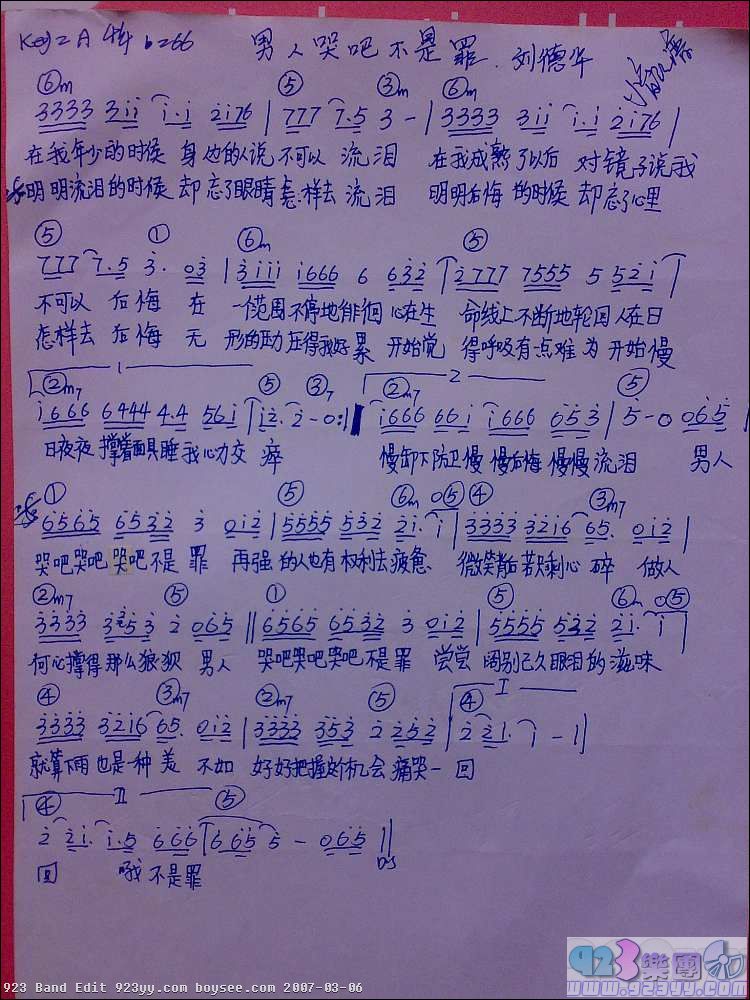 Key=A 4/4 ♩=66 男人哭吧不是罪. 刘德华
⑥m ⑤ ③m ⑥m
3333 3ii i·i 2i76 | 777 7·5 3 - | 3333 3ii i·i 2i76 |
在我年少的时候 身边的人说 不可以 流泪 在我成熟了以后 对镜子说我
明明流泪的时候 却忘了眼睛怎样去 流泪 明明后悔的时候 却忘了心里
⑤ ① ⑥m ⑤
777 7·5 3· 03 | 3iii i666 6 632 | 2777 7555 5 52i |
不可以 后悔 在 一范围不停地徘徊 心在生 命线上不断地轮回 人在日
怎样去 后悔 无 形的压力压得我好累 开始觉 得呼吸有点难为 开始慢
1 2
②m7 ⑤ ③7 ②m7 ⑤
i666 6444 4·4 56i | i2· 2 - 0 :| i666 66i i666 653 | 5 - 0 065 |
日夜夜 撑着面具睡 我心力交 瘁 慢卸下防卫慢 慢后悔 慢慢流泪 男人
① ⑤ ⑥m 0⑤ ④ ③m7
6565 6532 3 012 | 5555 532 2i· i | 3333 3216 65· 012 |
哭吧哭吧 哭吧不是 罪 再强的人也有权利去疲惫 微笑背后若只剩心 碎 做人
②m7 ⑤ ① ⑤ ⑥m 0⑤
3333 3253 2 065 || 6565 6532 3 012 | 5555 532 2i· i |
何必撑得 那么狼狈 男人 哭吧哭吧哭吧不是罪 尝尝 阔别已久眼泪的滋味
II
④ ③m7 ②m7 ⑤ ④
3333 3216 65· 012 | 3333 353 2 2252 | 2 2i· i - i ||
就算下雨也是一种 美 不如 好好把握这个机会 痛哭一 回
II
④ ⑤
2 2i· i·5 666 | 6 65 5 - 065 ||
回 哦 不是罪 DS
923 Band Edit 923yy.com boysee.com 2007-03-06
923樂團
www.923yy.com